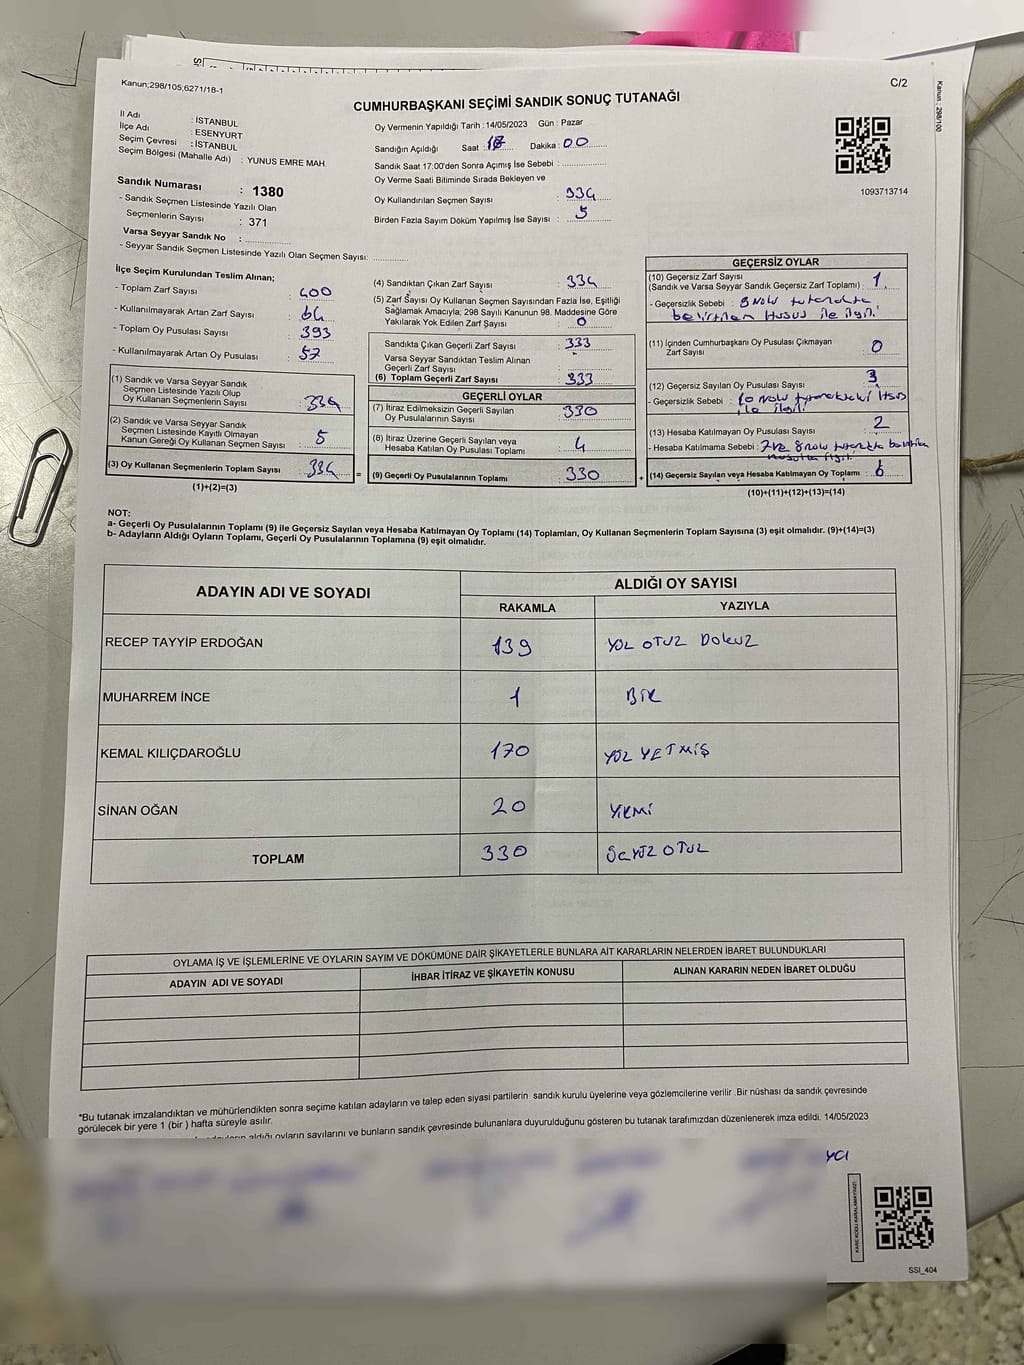 Kanun;298/105;6271/18-1
C/2
Kanun : 298/100
CUMHURBAŞKANI SEÇİMİ SANDIK SONUÇ TUTANAĞI
İl Adı : İSTANBUL
İlçe Adı : ESENYURT
Seçim Çevresi : İSTANBUL
Seçim Bölgesi (Mahalle Adı) : YUNUS EMRE MAH.
Sandık Numarası : 1380
- Sandık Seçmen Listesinde Yazılı Olan
Seçmenlerin Sayısı : 371
Varsa Seyyar Sandık No :
- Seyyar Sandık Seçmen Listesinde Yazılı Olan Seçmen Sayısı:
Oy Vermenin Yapıldığı Tarih :14/05/2023 Gün : Pazar
Sandığın Açıldığı Saat : Dakika : 00
Sandık Saat 17:00'den Sonra Açımış İse Sebebi :
Oy Verme Saati Bitiminde Sırada Bekleyen ve
Oy Kullandırılan Seçmen Sayısı : 334
Birden Fazla Sayım Döküm Yapılmış İse Sayısı : 5
1093713714
İlçe Seçim Kurulundan Teslim Alınan;
- Toplam Zarf Sayısı : 400
- Kullanılmayarak Artan Zarf Sayısı : 64
- Toplam Oy Pusulası Sayısı : 393
- Kullanılmayarak Artan Oy Pusulası : 57
(1) Sandık ve Varsa Seyyar Sandık
Seçmen Listesinde Yazılı Olup
Oy Kullanan Seçmenlerin Sayısı : 334
(2) Sandık ve Varsa Seyyar Sandık
Seçmen Listesinde Kayıtlı Olmayan
Kanun Gereği Oy Kullanan Seçmen Sayısı : 5
(3) Oy Kullanan Seçmenlerin Toplam Sayısı : 334
(1)+(2)=(3)
(4) Sandıktan Çıkan Zarf Sayısı : 334
(5) Zarf Sayısı Oy Kullanan Seçmen Sayısından Fazla İse, Eşitliği
Sağlamak Amacıyla; 298 Sayılı Kanunun 98. Maddesine Göre
Yakılarak Yok Edilen Zarf Sayısı : 0
Sandıkta Çıkan Geçerli Zarf Sayısı : 333
Varsa Seyyar Sandıktan Teslim Alınan
Geçerli Zarf Sayısı : -
(6) Toplam Geçerli Zarf Sayısı : 333
GEÇERLİ OYLAR
(7) İtiraz Edilmeksizin Geçerli Sayılan
Oy Pusulalarının Sayısı : 330
(8) İtiraz Üzerine Geçerli Sayılan veya
Hesaba Katılan Oy Pusulası Toplamı : 4
= (9) Geçerli Oy Pusulalarının Toplamı : 330
GEÇERSİZ OYLAR
(10) Geçersiz Zarf Sayısı
(Sandık ve Varsa Seyyar Sandık Geçersiz Zarf Toplamı) : 1
- Geçersizlik Sebebi : 8 nolu tutanakta
belirtilen Husus ile ilgili
(11) İçinden Cumhurbaşkanı Oy Pusulası Çıkmayan
Zarf Sayısı : 0
(12) Geçersiz Sayılan Oy Pusulası Sayısı : 3
- Geçersizlik Sebebi : 10 nolu tutanaktaki Husus
ile ilgili
(13) Hesaba Katılmayan Oy Pusulası Sayısı : 2
- Hesaba Katılmama Sebebi : 7 ve 8 nolu tutanakta belirtilen
+ (14) Geçersiz Sayılan veya Hesaba Katılmayan Oy Toplamı : 6
(10)+(11)+(12)+(13)=(14)
NOT:
a- Geçerli Oy Pusulalarının Toplamı (9) ile Geçersiz Sayılan veya Hesaba Katılmayan Oy Toplamı (14) Toplamları, Oy Kullanan Seçmenlerin Toplam Sayısına (3) eşit olmalıdır. (9)+(14)=(3)
b- Adayların Aldığı Oyların Toplamı, Geçerli Oy Pusulalarının Toplamına (9) eşit olmalıdır.
ADAYIN ADI VE SOYADI
ALDIĞI OY SAYISI
RAKAMLA YAZIYLA
RECEP TAYYİP ERDOĞAN 139 YÜZ OTUZ DOKUZ
MUHARREM İNCE 1 BİR
KEMAL KILIÇDAROĞLU 170 YÜZ YETMİŞ
SİNAN OĞAN 20 YİRMİ
TOPLAM 330 ÜÇYÜZ OTUZ
OYLAMA İŞ VE İŞLEMLERİNE VE OYLARIN SAYIM VE DÖKÜMÜNE DAİR ŞİKAYETLERLE BUNLARA AİT KARARLARIN NELERDEN İBARET BULUNDUKLARI
ADAYIN ADI VE SOYADI
İHBAR İTİRAZ VE ŞİKAYETİN KONUSU
ALINAN KARARIN NEDEN İBARET OLDUĞU
*Bu tutanak imzalandıktan ve mühürlendikten sonra seçime katılan adayların ve talep eden siyasi partilerin sandık kurulu üyelerine veya gözlemcilerine verilir .Bir nüshası da sandık çevresinde
görülecek bir yere 1 (bir ) hafta süreyle asılır.
aldığı oyların sayılarını ve bunların sandık çevresinde bulunanlara duyurulduğunu gösteren bu tutanak tarafımızdan düzenlenerek imza edildi. 14/05/2023
YCI
KARE KODU KARALAMAYINIZ!
SSI_404